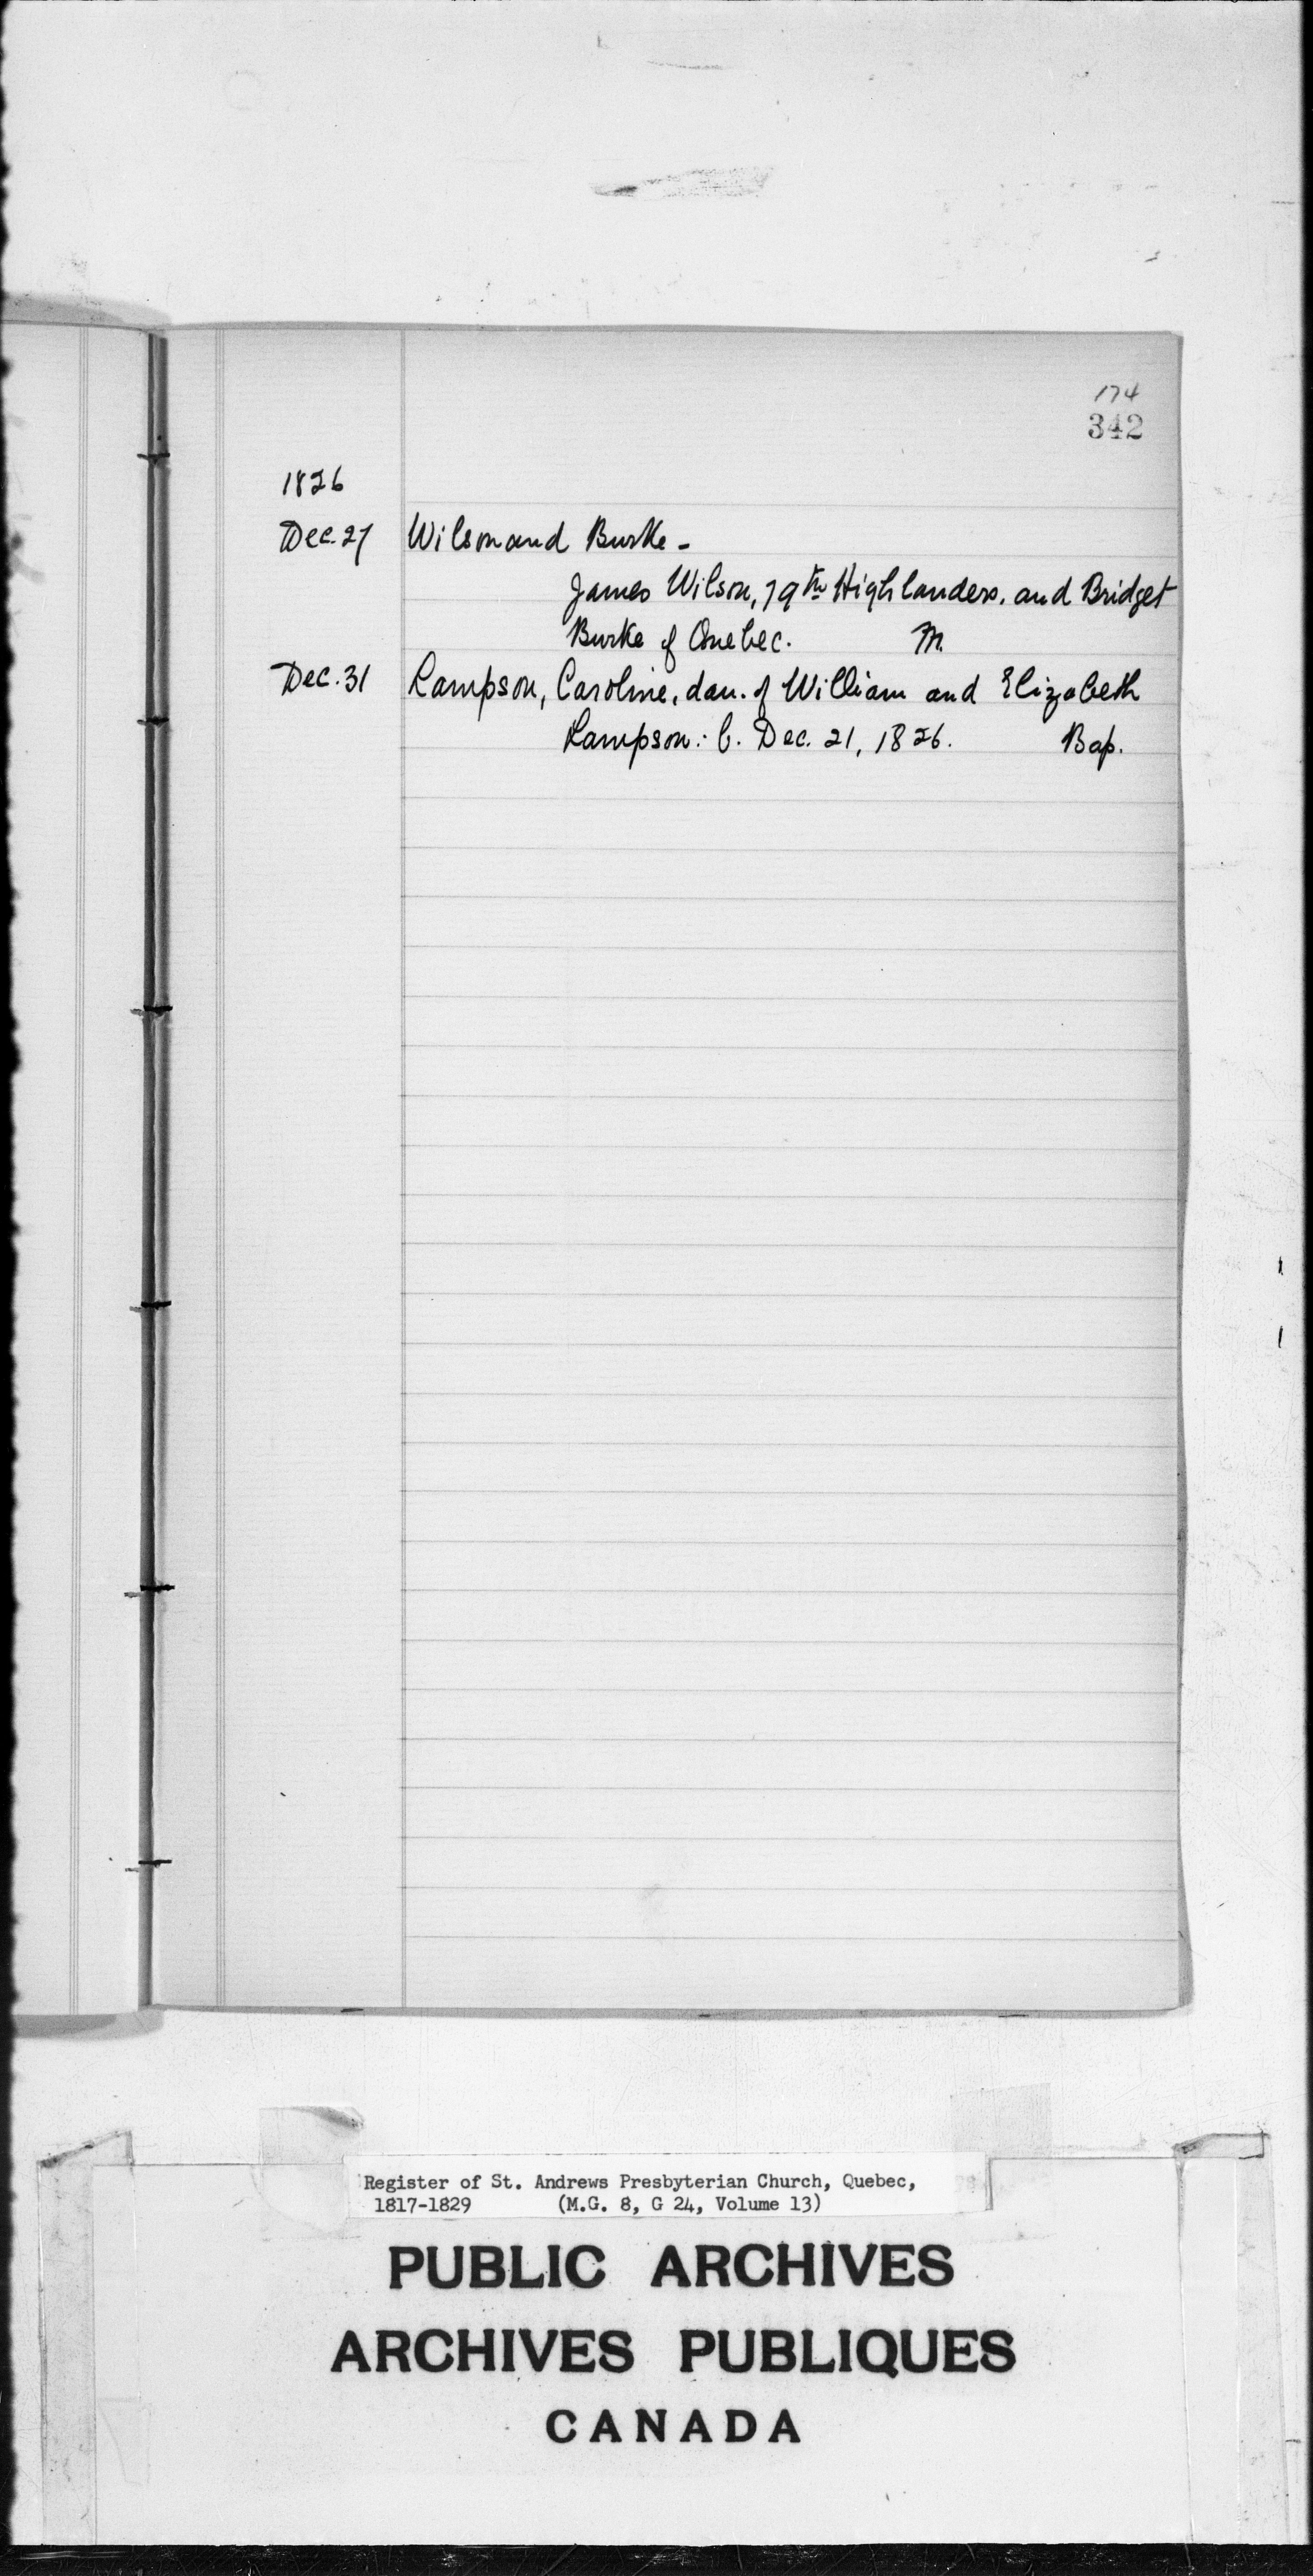 174
342
1826
Dec. 27 Wilson and Burke -
James Wilson, 79th Highlanders, and Bridget
Burke of Quebec. M.
Dec. 31 Lampson, Caroline, dau. of William and Elizabeth
Lampson: b. Dec. 21, 1826. Bap.
Register of St. Andrews Presbyterian Church, Quebec,
1817-1829 (M.G. 8, G 24, Volume 13)
PUBLIC ARCHIVES
ARCHIVES PUBLIQUES
CANADA